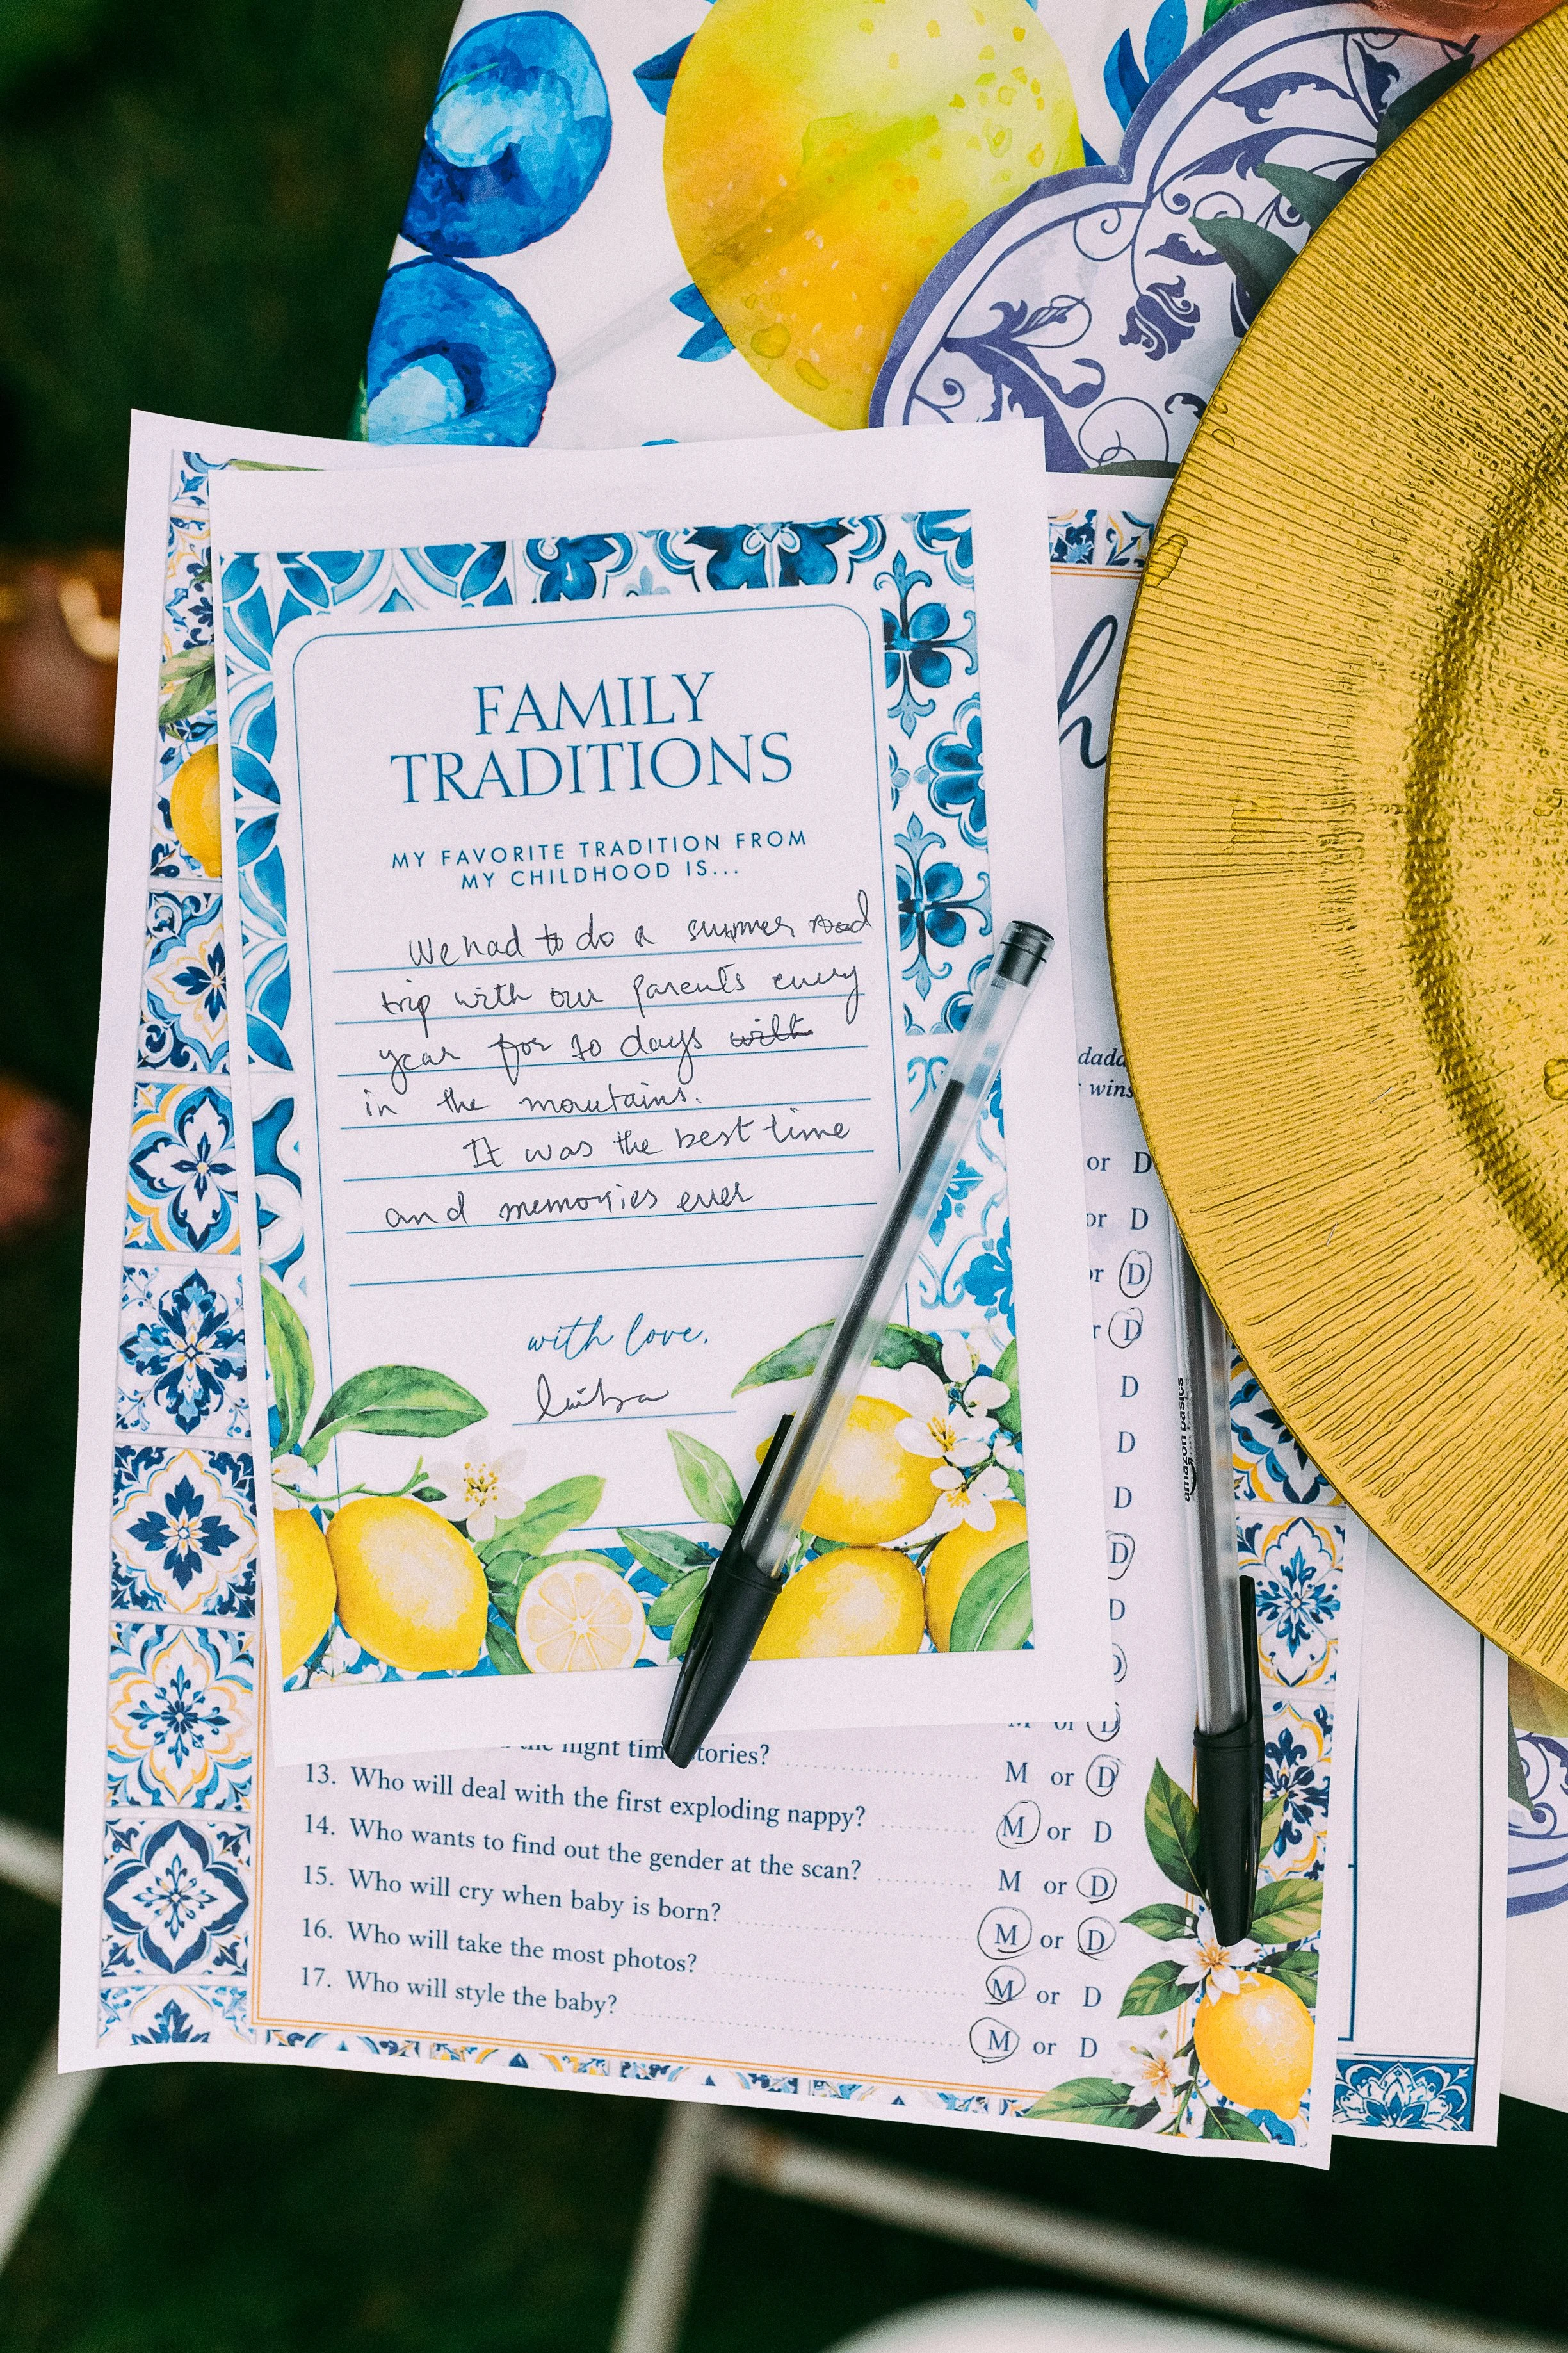 FAMILY
TRADITIONS
MY FAVORITE TRADITION FROM
MY CHILDHOOD IS...
We had to do a summer road
trip with our parents every
year for 10 days with
in the mountains.
It was the best time
and memories ever
with love,
h
dada
wins
or D
or D
or D
r D
D
D
D
D
D
M or D
night time stories?
M or D
13. Who will deal with the first exploding nappy?
M or D
14. Who wants to find out the gender at the scan?
M or D
15. Who will cry when baby is born?
M or D
16. Who will take the most photos?
M or D
17. Who will style the baby?
M or D
amazon basics